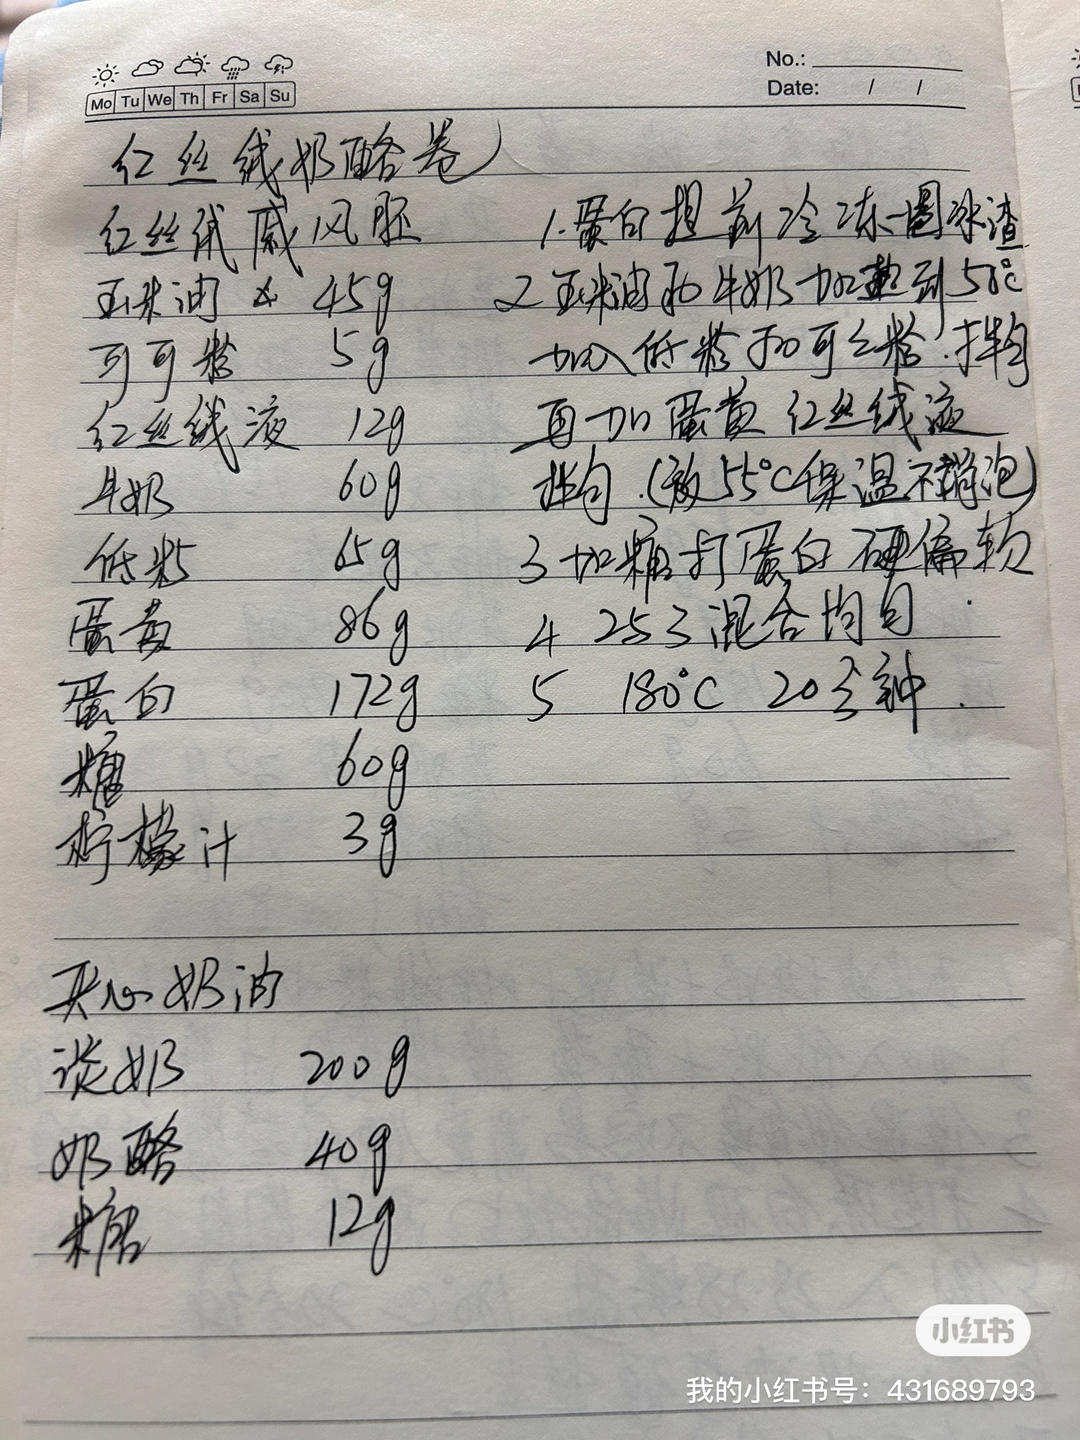 No.:
Mo Tu We Th Fr Sa Su
Date: / /
红丝绒奶酪卷
红丝绒戚风胚
玉米油 45g
可可粉 5g
红丝绒液 12g
牛奶 60g
低粉 65g
蛋黄 86g
蛋白 172g
糖 60g
柠檬汁 3g
1.蛋白提前冷冻一圈冰渣
2 玉米油和牛奶加热到50℃
加入低粉和可可粉.拌匀
再加蛋黄 红丝绒液
拌匀.(放55℃保温不消泡)
3 加糖打蛋白 硬偏软
4 2与3混合均匀
5 180℃ 20分钟.
夹心奶油
淡奶 200g
奶酪 40g
糖 12g
小红书
我的小红书号：431689793